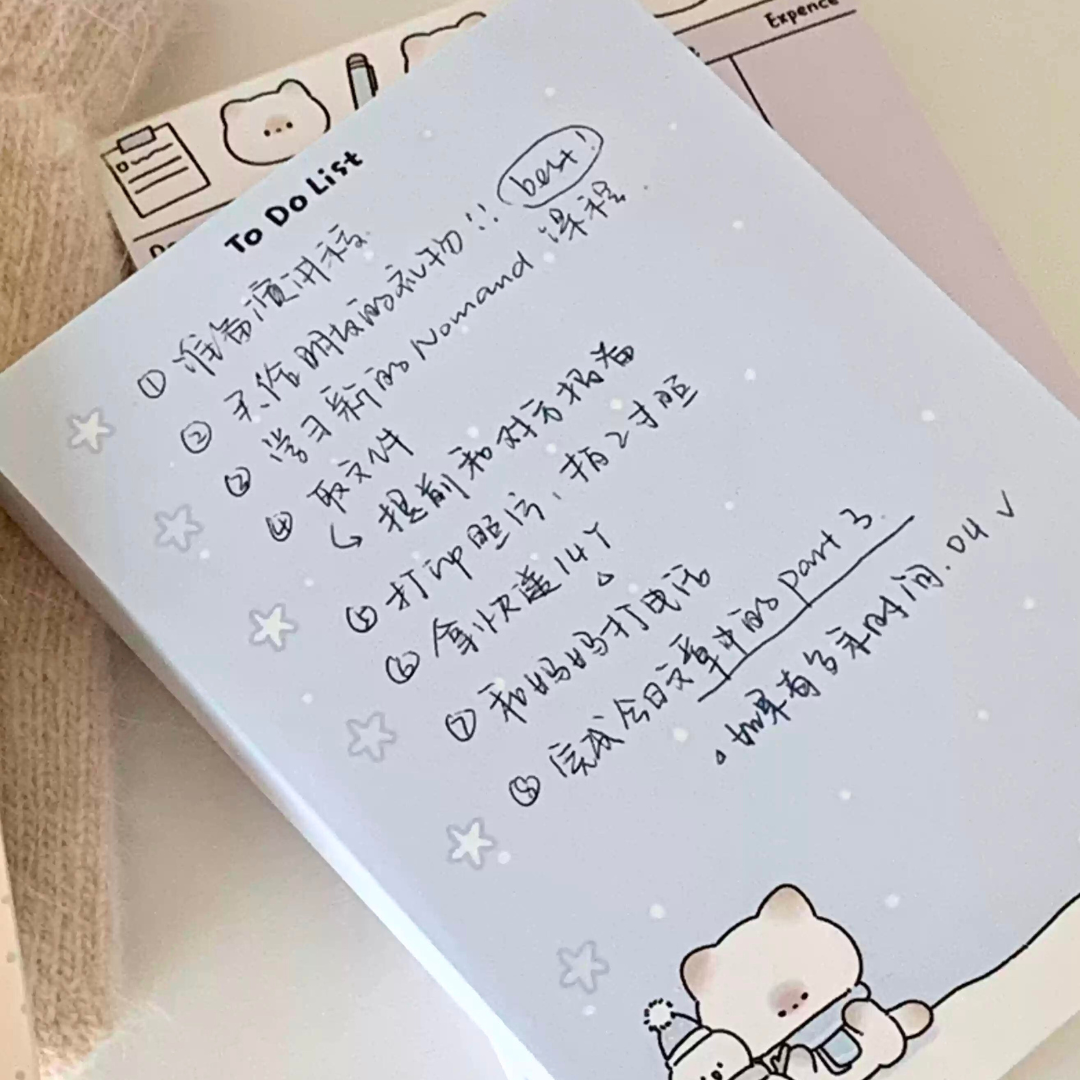 Expence
To Do List
① 准备演讲稿
② 买给朋友的礼物!! best!
③ 学习新的 Nomand 课程
④ 取文件
↳ 提前和对方招看
⑤ 打印照片, 拍2寸照
⑥ 拿快递14Y
⑦ 和妈妈打电话
⑧ 完成今日文章中的 Part 3
如果有多余时间. D4 √